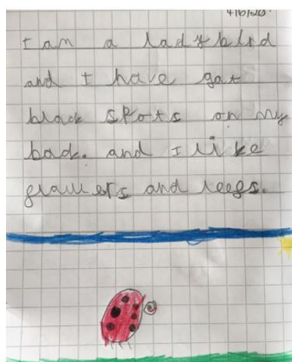 4/6/20.
I am a ladyblrd
and I have got
black spots on my
back. and I like
flawers and leegs.